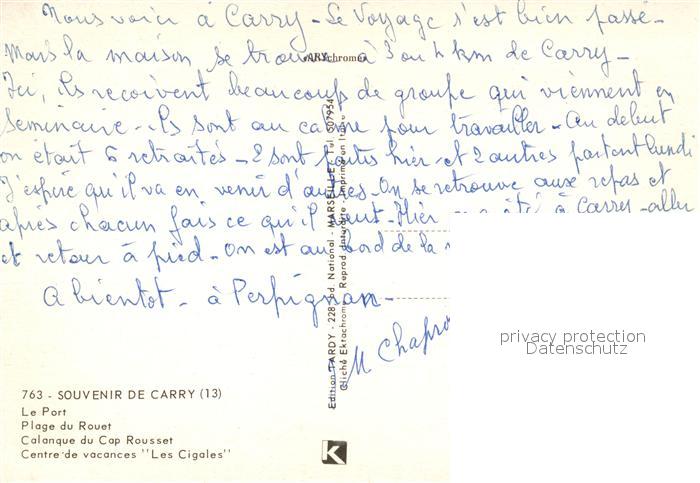 Nous voici à Carry - Le Voyage s'est bien passé -
Mais la maison se trouve à 3 ou 4 km de Carry -
Ici, ils reçoivent beaucoup de groupe qui viennent en
Seminaire - Ils sont au calme pour travailler - Au debut
on était 6 retraités - 2 sont partis hier - et 2 autres partent lundi
J'espère qu'il va en venir d'autres - On se retrouve aux repas et
après chacun fais ce qu'il veut - Hier à Carry - aller
et retour à pied - On est au bord de la
A bientot - à Perpignan -
M Chapro
ARYchrome
Edition TARDY - 228, Bd. National - MARSEILLE - Tél. 507954
Cliché Ektachrome - Reprod. Interdite - Imprimé en Italie
privacy protection
Datenschutz
763 - SOUVENIR DE CARRY (13)
Le Port
Plage du Rouet
Calanque du Cap Rousset
Centre de vacances "Les Cigales"
K